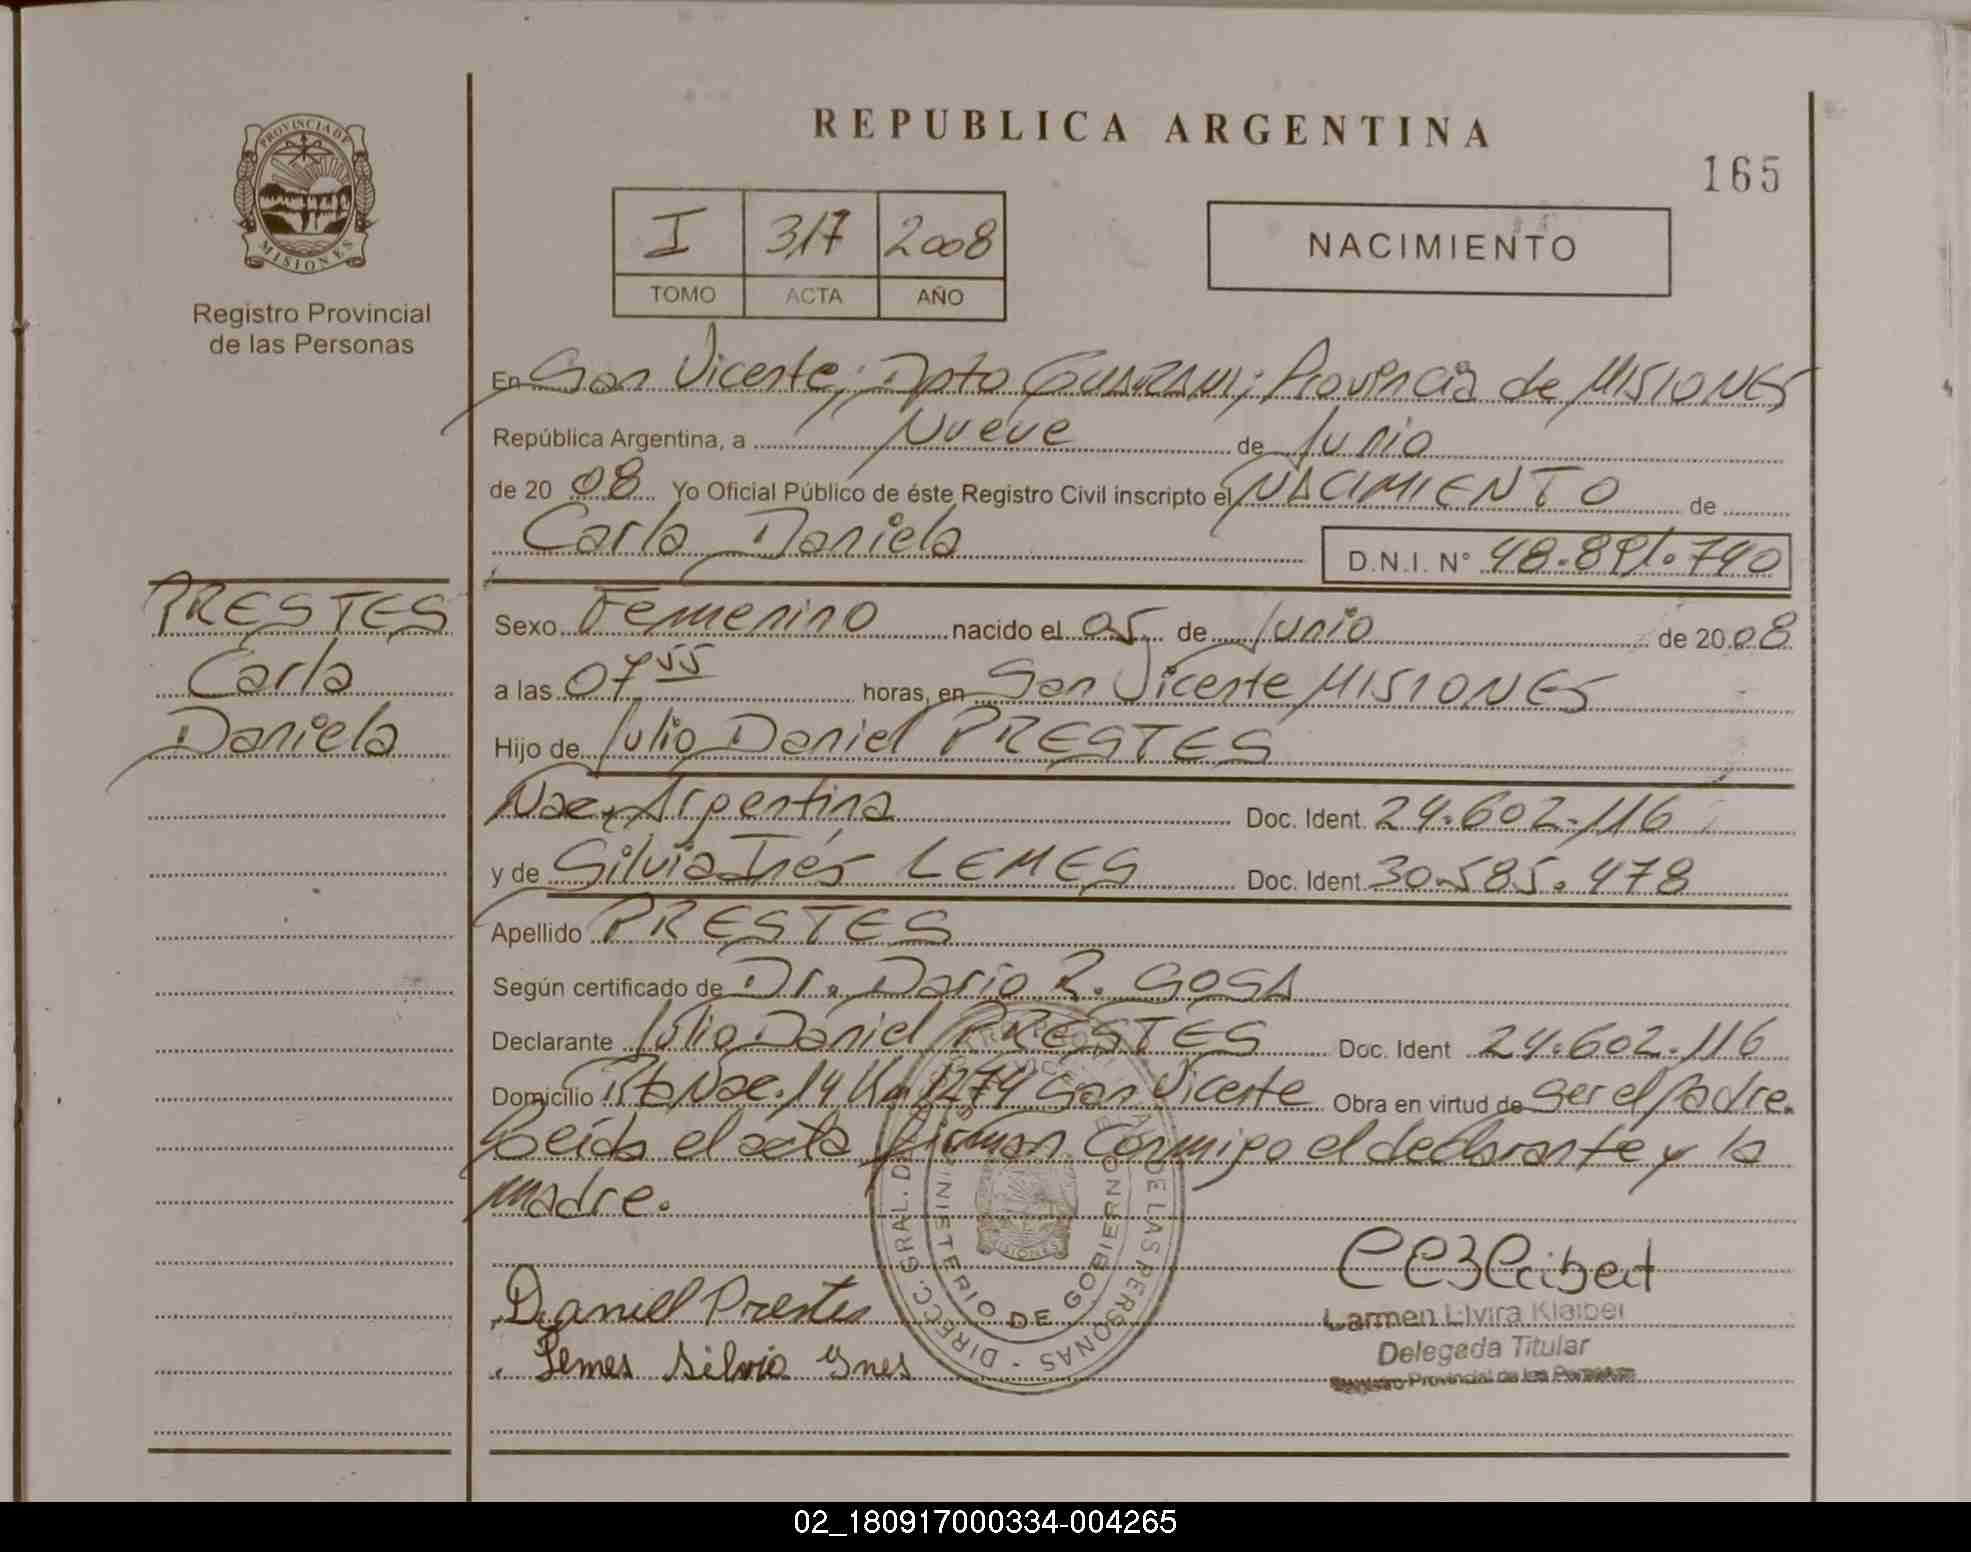 REPUBLICA ARGENTINA
165
PROVINCIA DE
MISIONES
Registro Provincial
de las Personas
I 317 2008
TOMO ACTA AÑO
NACIMIENTO
En San Vicente; Dpto GUARANI; Provincia de MISIONES
República Argentina, a Nueve de Junio
de 20 08 Yo Oficial Público de éste Registro Civil inscripto el NACIMIENTO de
Carla Daniela D.N.I. N° 48.891.740
PRESTES
Carla
Daniela
Sexo Femenino nacido el 05 de Junio de 2008
a las 07 55 horas, en San Vicente MISIONES
Hijo de Julio Daniel PRESTES
Nac. Argentina Doc. Ident. 24.602.116
y de Silvia Inés LEMES Doc. Ident 30.585.478
Apellido PRESTES
Según certificado de Dr. Dario R. SOSA
Declarante Julio Daniel PRESTES Doc. Ident 24.602.116
Domicilio Rta Nac. 14 Km 1274 San Vicente Obra en virtud de Ser el padre.
Leída el acta firman conmigo el declarante y la
madre.
Daniel Prestes
Lemes Silvia Ynes
DIRECC. GRAL. DE LAS PERSONAS
MINISTERIO DE GOBIERNO
MISIONES
Carmen Elvira Klaiber
Delegada Titular
Registro Provincial de las Personas
02_180917000334-004265